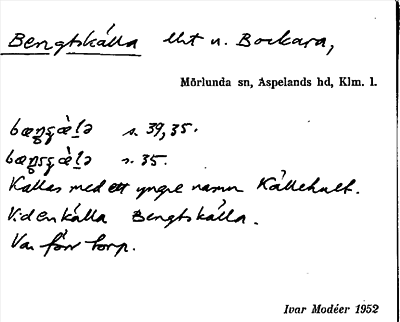 Bengtskálla lht u. Bockara,
Mörlunda sn, Aspelands hd, Klm. l.
s. 39, 35.
s. 35.
Kallas med ett yngre namn Källehult.
Viden källa Bengtskálla.
Var förr torp.
Ivar Modéer 1952